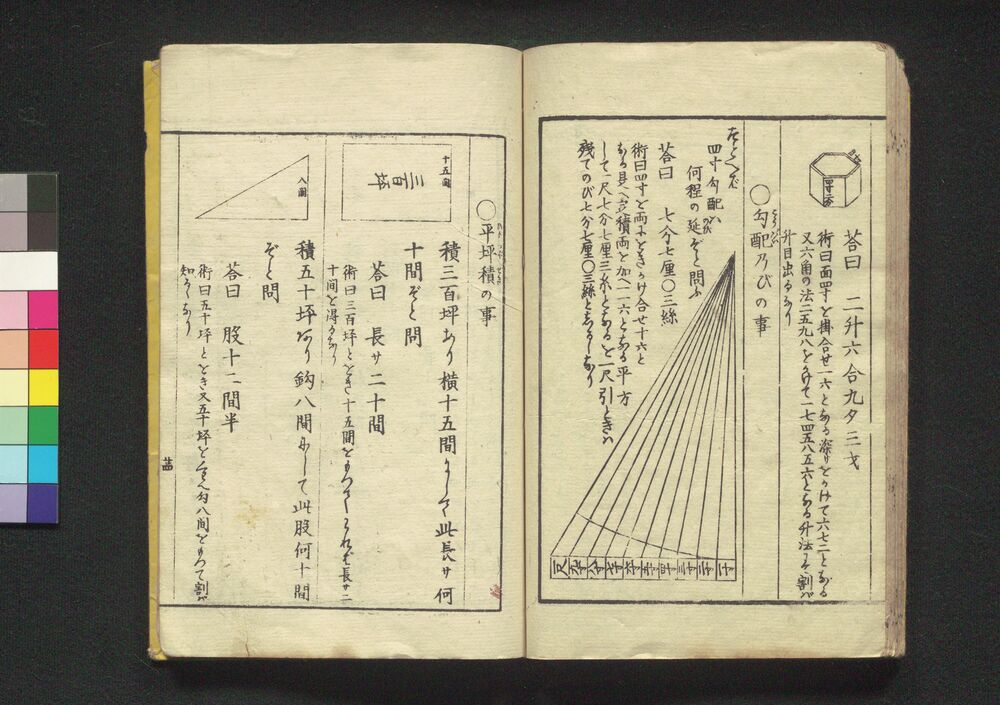 四寸方
荅曰　二升六合九夕三才
術曰面四寸を掛合せ一六となる深サをかけて六七二となる
又六角の法二五九八をかけて一七四五八五六となる升法にて割バ
升目出るなり
〇勾配乃のびの事
こうばい
たとへバ
四寸勾配ハ
何程の延ぞと問ふ
のび
荅曰　七分七厘〇三絲
術曰四寸を両方にをきかけ合せ十六と
なる是へ一〇〇積両を加へ一一六となる平方
して一尺七分七厘三糸となるを一尺引ときハ
残てのび七分七厘〇三絲としるゝなり
一寸
二寸
三寸
四寸
五寸
六寸
七寸
八寸
九寸
一尺
〇平坪積の事
積三百坪あり横十五間にして此長サ何
十間ぞと問
荅曰　長サ二十間
術曰三百坪とをき十五間をもつてこれをわれバ長サ二
十間を得るなり
十五間
三百坪
積五十坪あり鈎八間にして此股何十間
ぞと問
荅曰　股十二間半
術曰五十坪とをき又五十坪をくハへ勾八間をもつて割バ
知るゝなり
八間